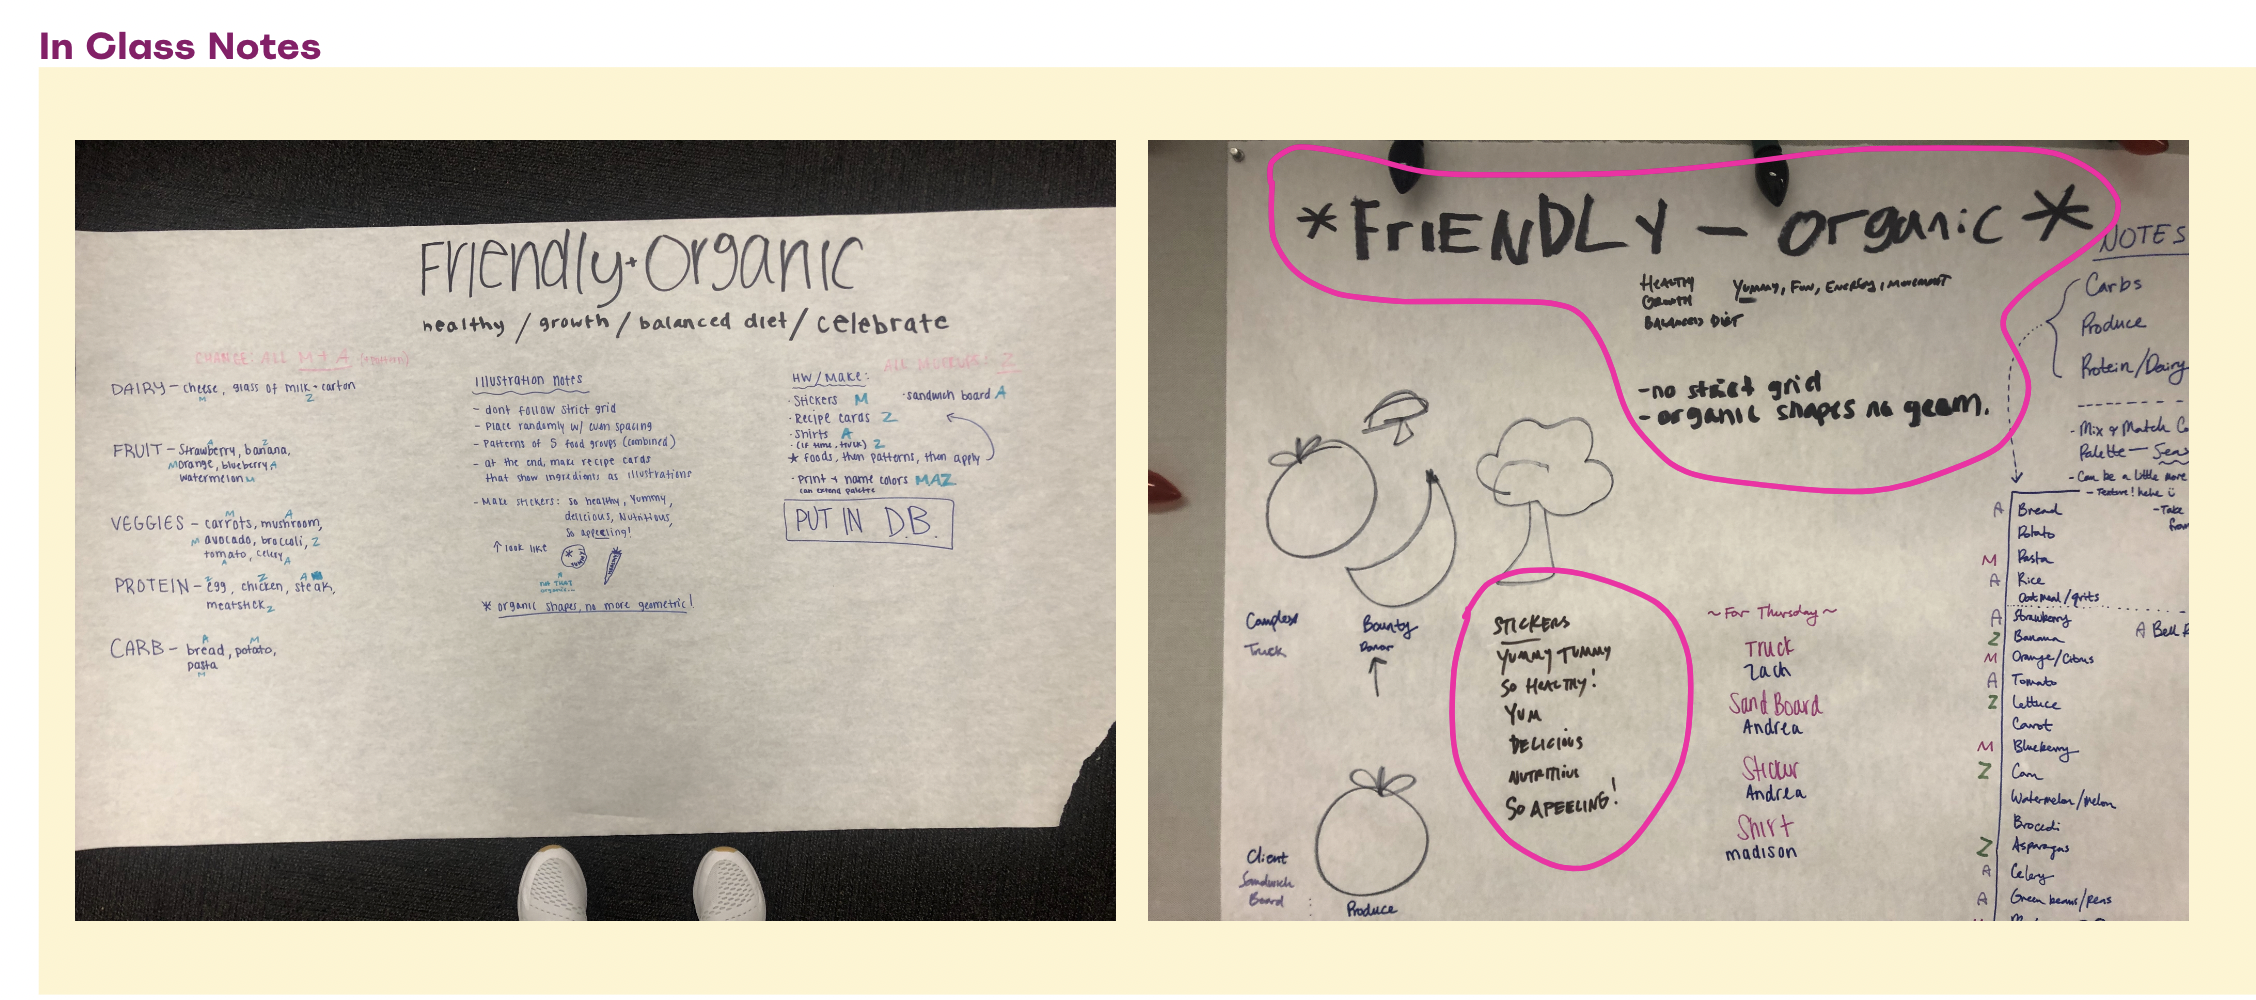 In Class Notes
Friendly + Organic
healthy / growth / balanced diet / celebrate
CHANGE: ALL M + A
DAIRY - cheese, glass of milk + carton
M
Z
FRUIT - strawberry, banana,
A
Z
M orange, blueberry A
watermelon M
VEGGIES - carrots, mushroom,
M
A
M avocado, broccoli, Z
tomato, celery A
A
PROTEIN - egg, chicken, steak,
Z
Z
A
meatstick Z
CARB - bread, potato,
A
M
pasta
M
Illustration notes
- dont follow strict grid
- Place randomly w/ even spacing
- Patterns of 5 food groups (combined)
- at the end, make recipe cards
that show ingredients as illustrations
- Make stickers: so healthy, Yummy,
delicious, Nutritious,
so appeeling!
↑ look like
not THAT
organic...
* organic shapes, no more geometric!
ALL MOCKUPS: Z
HW/Make:
· Stickers M
· sandwich board A
· Recipe cards Z
· Shirts A
· (if time, truck) Z
* foods, then patterns, then apply
· Print + name colors MAZ
can extend palette
PUT IN D.B.
* FriENDLY - organic *
HEALTHY
GROWTH
BALANCED DIET
YUMMY, FUN, ENERGY, MOVEMENT
- no strict grid
- organic shapes no geom.
NOTES
Carbs
Produce
Protein/Dairy
- Mix & Match
Palette
- Can be a little more
- Texture! hehe
- Take
from
A Bread
Potato
M Pasta
A Rice
Oatmeal/grits
A Strawberry
Z Banana
M Orange/Citrus
A Tomato
Z Lettuce
Carrot
M Blueberry
Z Corn
Watermelon/Melon
Broccoli
Z Asparagus
A Celery
A Green beans/peas
A Bell
Truck
Bounty
Donor
STICKERS
YUMMY TUMMY
SO HEALTHY!
YUM
DELICIOUS
SO APEELING!
~ For Thursday ~
Truck
Zach
Sand Board
Andrea
Sticker
Andrea
Shirt
madison
Client
Sandwich
Board
Produce